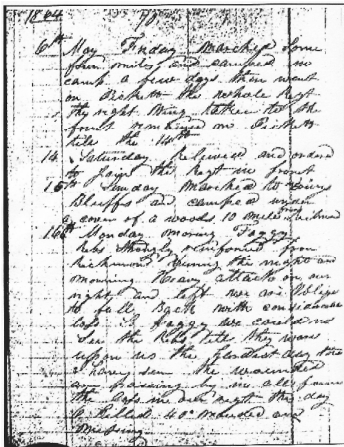 1864
6th May Friday Marched some
four miles and camped in
camp a few days then went
on Pickett the whole Regt
the right Wing taken to the
front remained on Pickett
till the 14th
14 Saturday Relieved and orderd
to Join the Regt in front
15th Sunday Marched to
Bluffs and camped under
a cover of a woods 10 miles from Richmond
16th Monday morning Foggy
Rebs strongly reinforced from
Richmond During the night and
morning Heavy attack on our
right and left we are oblige
to fall back with considerable
loss is foggy we could n
See the Rebs till they were
upon us the day this
I have seen the wounded
are passing by in all forms
the Regt the day
6 Killed 40 wounded and
missing